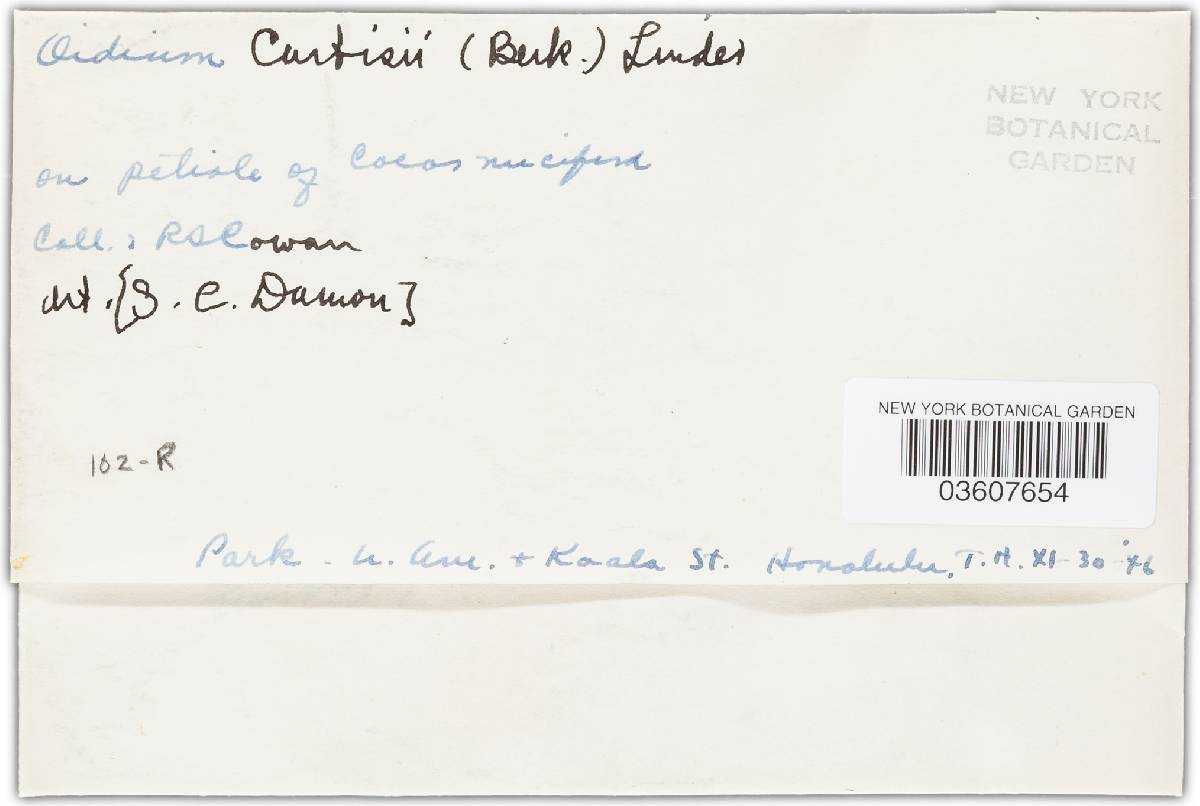 Oidium Curtisii (Berk.) Linder
NEW YORK
BOTANICAL
GARDEN
on petiole of Cocos nucifera
Coll.: RSCowan
det. [S. C. Damon]
NEW YORK BOTANICAL GARDEN
03607654
102-R
Park - U. Ave. + Koala St. Honolulu, T.H. XI-30-'46